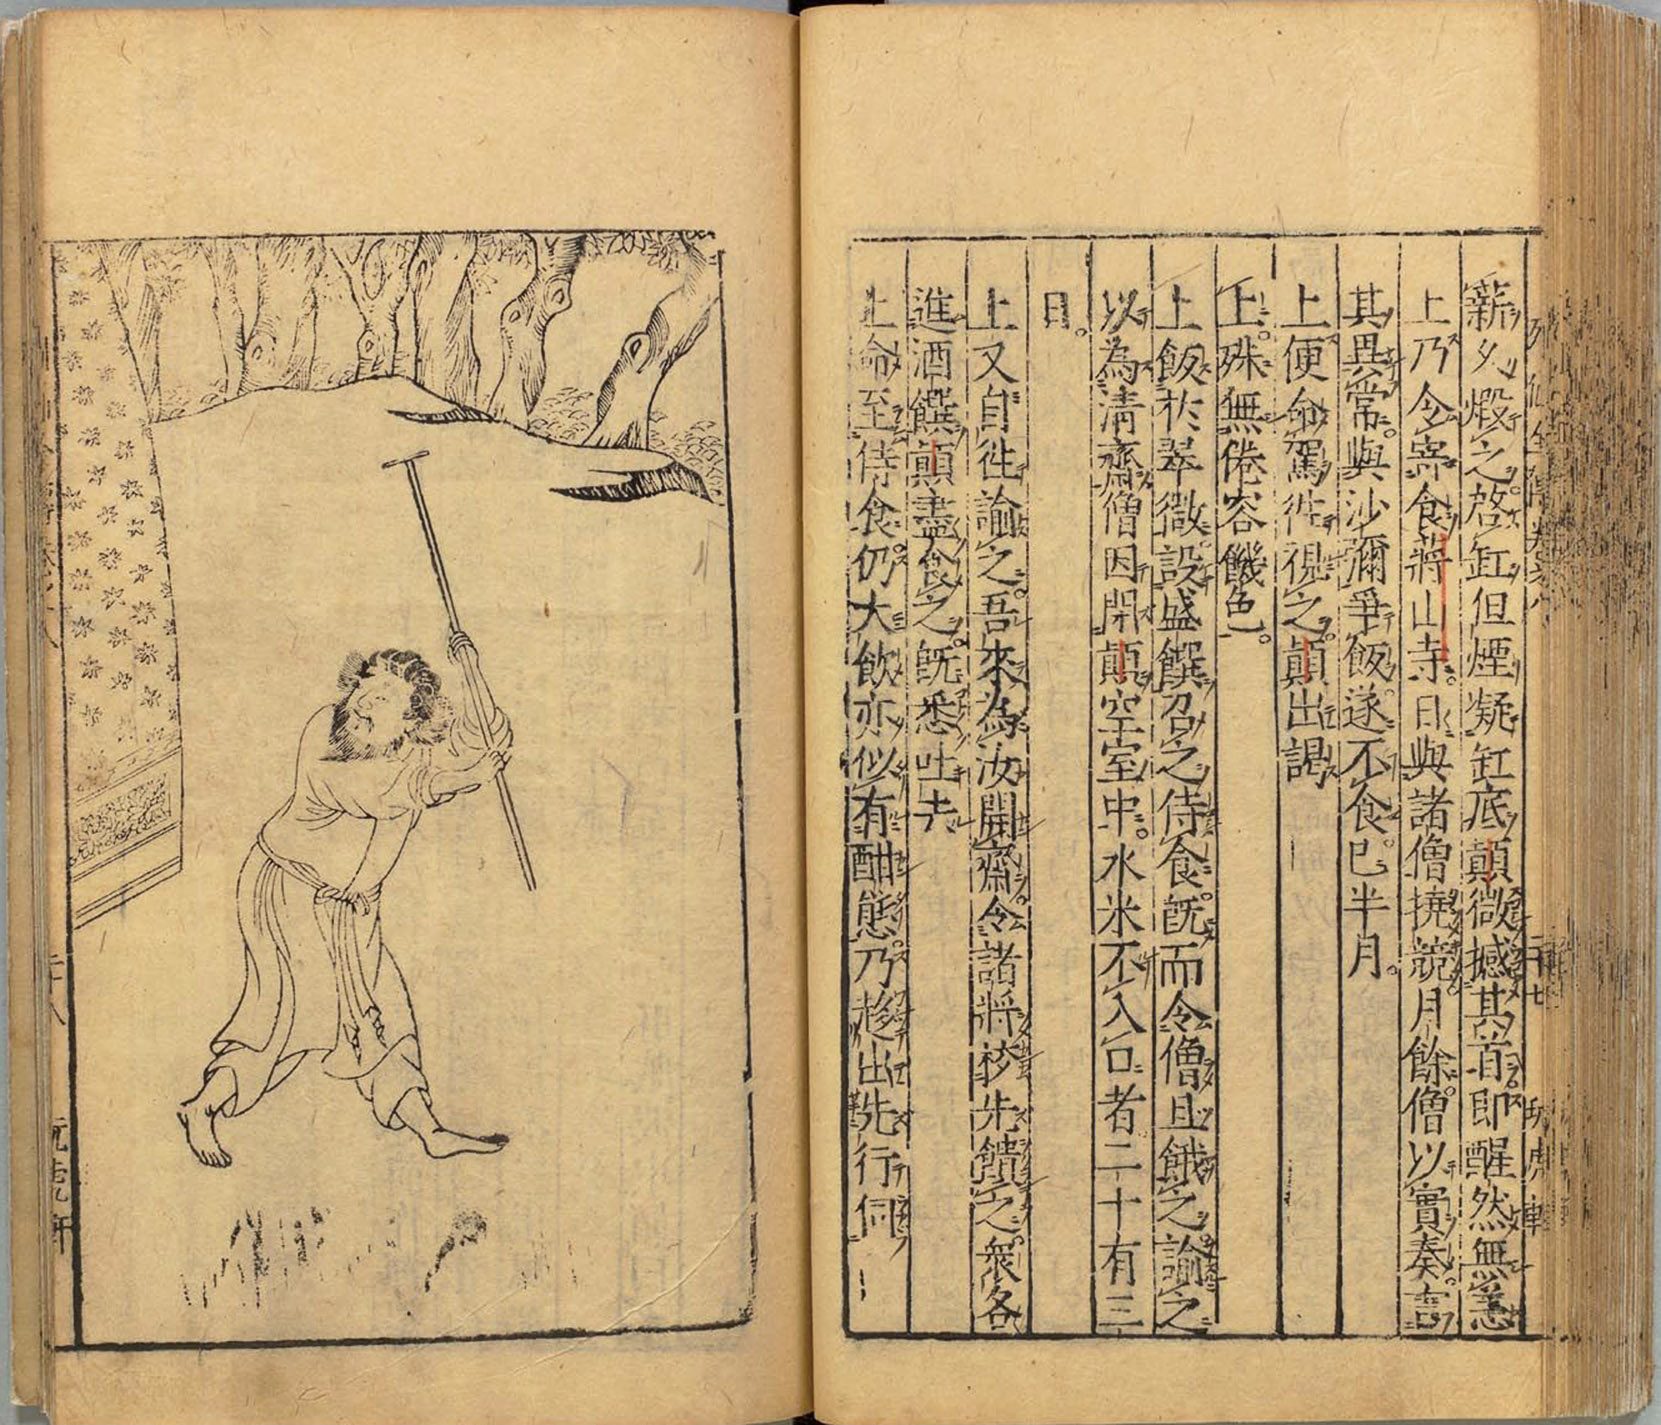 薪夕煅之啓缸但煙凝缸底顛微撼其首即醒然無恙
上乃令寄食蔣山寺日與諸僧撓競月餘僧以實奏言
其異常與沙彌爭飯遂不食已半月
上便命駕徃視之顛出謁
上殊無倦容饑色
上飯於翠微設盛饌召之侍食旣而令僧且餓之諭之
以為清齋僧因閉顛空室中水米不入口者二十有三
日
上又自徃諭之吾來為汝開齋令諸將校先饋之衆各
進酒饌顛盡食之旣悉吐去
上命至侍食仍大飲亦似有酣態乃趍出先行伺
列仙全傳卷之八
二十七
玩虎軒
二十八
玩虎軒